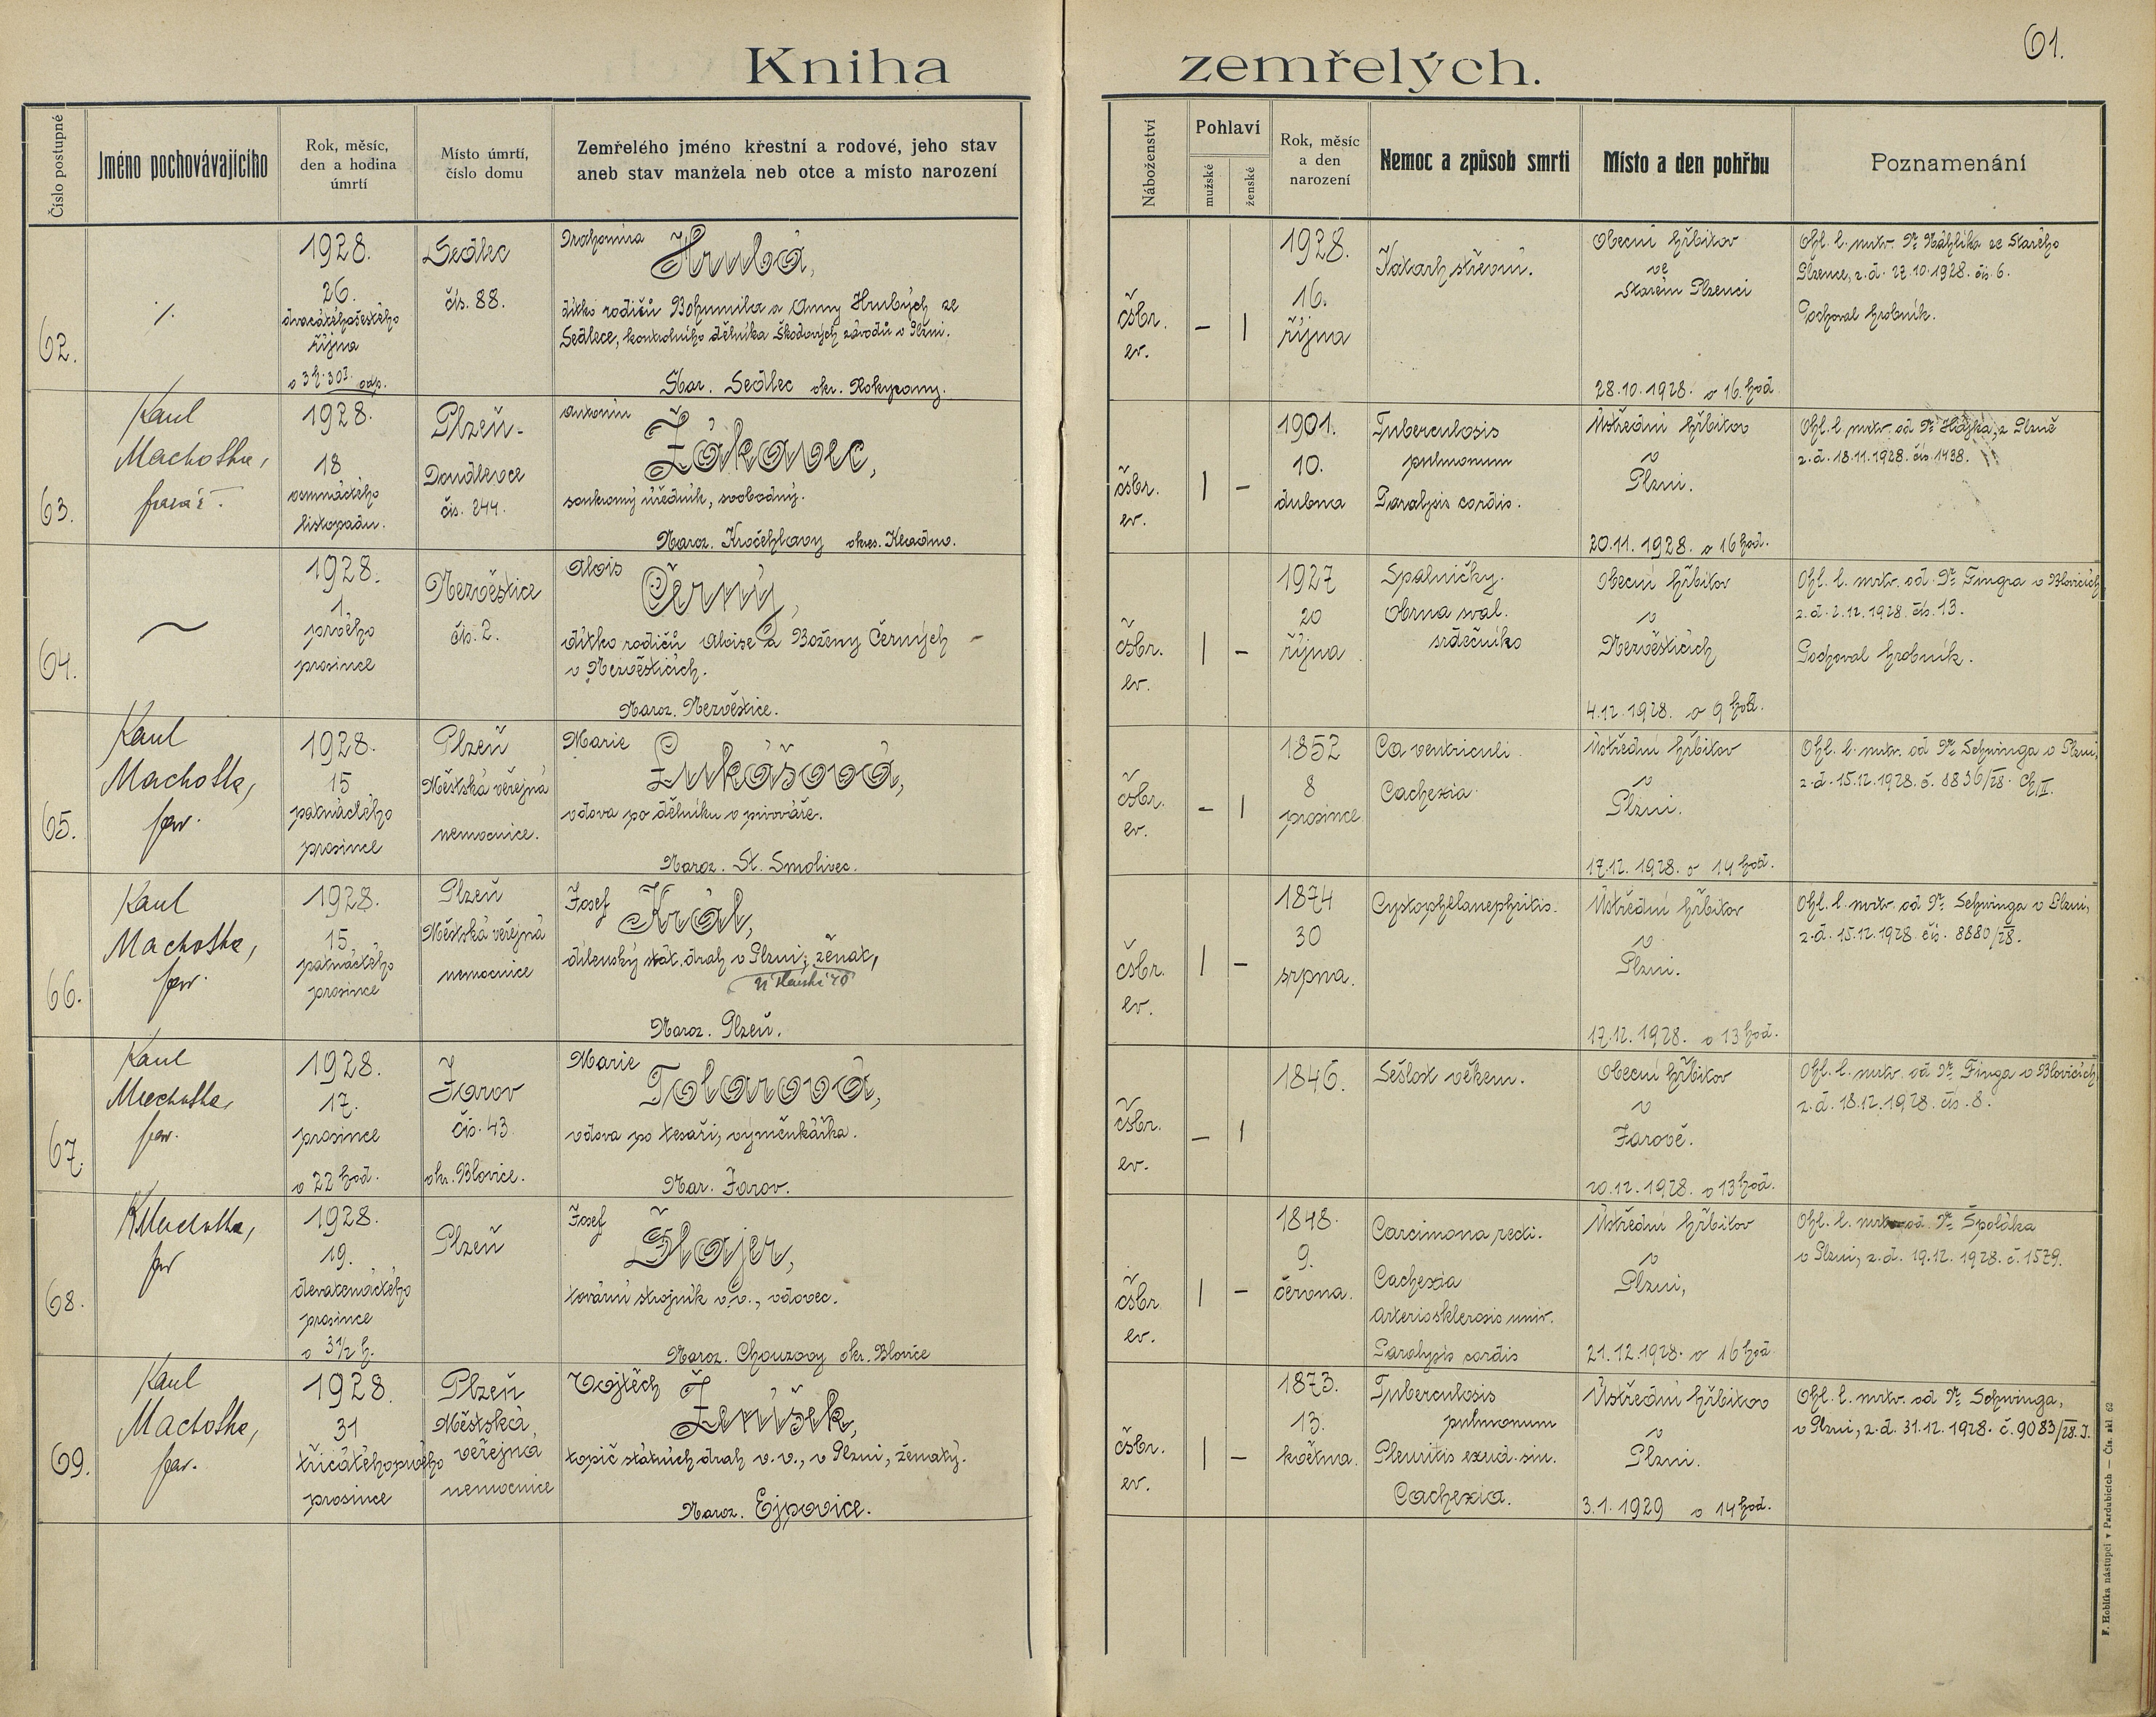 61.
Kniha zemřelých.
Číslo postupné
Jméno pochovávajícího
Rok, měsíc,
den a hodina
úmrtí
Místo úmrtí,
číslo domu
Zemřelého jméno křestní a rodové, jeho stav
aneb stav manžela neb otce a místo narození
Náboženství
Pohlaví
mužské
ženské
Rok, měsíc
a den
narození
Nemoc a způsob smrti
Místo a den pohřbu
Poznamenání
62.
1928.
26.
dvacátéhošestého
října
o 3h. 30 odp.
Sedlec
čís. 88.
Drahomíra
Hrubá,
dítko rodičů Bohumila a Anny Hrubých ze
Sedlece, kontrolního dělníka Škodových závodů v Plzni.
Nar. Sedlec okr. Rokycany.
čsbr.
ev.
– |
1928.
16.
října
Katarh střevní.
Obecní hřbitov
ve
Starém Plzenci
28.10.1928. o 16 hod.
Ohl. l. mrtv. Dr. Náhlíka ze Starého
Plzence, z. d. 27.10.1928. čís. 6.
Pochoval hrobník.
63.
Karel
Machotka,
farář.
1928.
18
osmnáctého
listopadu.
Plzeň-
Doudlevce
čís. 244.
Antonín
Žákovec,
soukromý úředník, svobodný.
Naroz. Kročehlavy okres. Kladno.
čsbr.
ev.
| –
1901.
10.
dubna
Tuberculosis
pulmonum
Paralysis cordis.
Ústřední hřbitov
v
Plzni.
20.11.1928. o 16 hod.
Ohl. l. mrtv. od Dr. Hájka, z Plzně
z. d. 18.11.1928. čís. 1438.
64.
1928.
1.
prvého
prosince
Nezvěstice
čís. 2.
Alois
Černý,
dítko rodičů Aloise a Boženy Černých –
v Nezvěsticích.
Naroz. Nezvěstice.
čsbr.
ev.
| –
1927
20
října
Spalničky.
Obrna sval.
srdečního
Obecní hřbitov
v
Nezvěsticích
4.12.1928. o 9 hod.
Ohl. l. mrtv. od Dr. Fingra v Blovicích
z. d. 2.12.1928. čís. 13.
Pochoval hrobník.
65.
Karel
Machotka,
far.
1928.
15
patnáctého
prosince
Plzeň
Městská veřejná
nemocnice.
Marie
Lukášová,
vdova po dělníku v pivováře.
Naroz. St. Smolivec.
čsbr.
ev.
– |
1852
8
prosince
Ca ventriculi.
Cachexia.
Ústřední hřbitov
v
Plzni.
17.12.1928. o 14 hod.
Ohl. l. mrtv. od Dr. Schwinga v Plzni,
z. d. 15.12.1928. č. 8836/28. Ch. II.
66.
Karel
Machotka,
far.
1928.
15.
patnáctého
prosince
Plzeň
Městská veřejná
nemocnice
Josef
Král,
dílenský stát. drah v Plzni, ženat,
Naroz. Plzeň.
čsbr.
ev.
| –
1874
30
srpna.
Cystophelanephritis.
Ústřední hřbitov
v
Plzni.
17.12.1928. o 13 hod.
Ohl. l. mrtv. od Dr. Schwinga v Plzni,
z. d. 15.12.1928. čís. 8880/28.
67.
Karel
Machotka,
far.
1928.
17.
prosince
o 22 hod.
Žarov
čís. 43.
okr. Blovice.
Marie
Tolarová,
vdova po tesaři, výměnkářka.
Nar. Žarov.
čsbr.
ev.
– |
1846.
Sešlost věkem.
Obecní hřbitov
v
Žarově.
20.12.1928. o 13 hod.
Ohl. l. mrtv. od Dr. Finga v Blovicích,
z. d. 18.12.1928. čís. 8.
68.
KMachotka,
far
1928.
19.
devatenáctého
prosince
o 3 1/2 h.
Plzeň
Josef
Šlajer,
tovární strojník v. v., vdovec.
Naroz. Chouzovy okr. Blovice
čsbr.
ev.
| –
1848.
9.
června.
Carcimona recti.
Cachexia
Arteriosklerosis univ.
Paralysis cordis
Ústřední hřbitov
v
Plzni,
21.12.1928. o 16 hod.
Ohl. l. mrtv. od Dr. Špoláka
v Plzni, z. d. 19.12.1928. č. 1579.
69.
Karel
Machotka,
far.
1928.
31
třicátéhoprvého
prosince
Plzeň
Městská,
veřejná
nemocnice
Vojtěch
Ženíšek,
topič státních drah v. v., v Plzni, ženatý.
Naroz. Ejpovice.
čsbr.
ev.
| –
1873.
13.
května.
Tuberculosis
pulmonum
Pleuritis exud. sin.
Cachexia.
Ústřední hřbitov
v
Plzni.
3.1.1929 o 14 hod.
Ohl. l. mrtv. od Dr. Schwinga,
v Plzni, z. d. 31.12.1928. č. 9083/28. I.
F. Hoblíka nástupci v Pardubicích — Čís. skl. 62